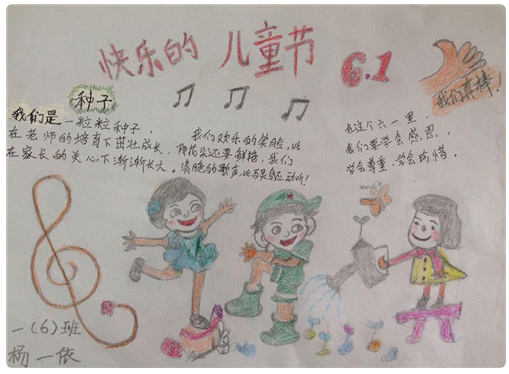 快乐的 儿童节 6.1
我们真棒！
种子
我们是一粒粒种子，
在老师的培育下茁壮成长，
在家长的关心下渐渐长大。
我们欢乐的笑脸，比
花朵还要鲜艳，我们
清脆的歌声，比百灵鸟还动听！
在这个六一里，
我们要学会感恩，
学会尊重，学会珍惜。
一（6）班
杨一依